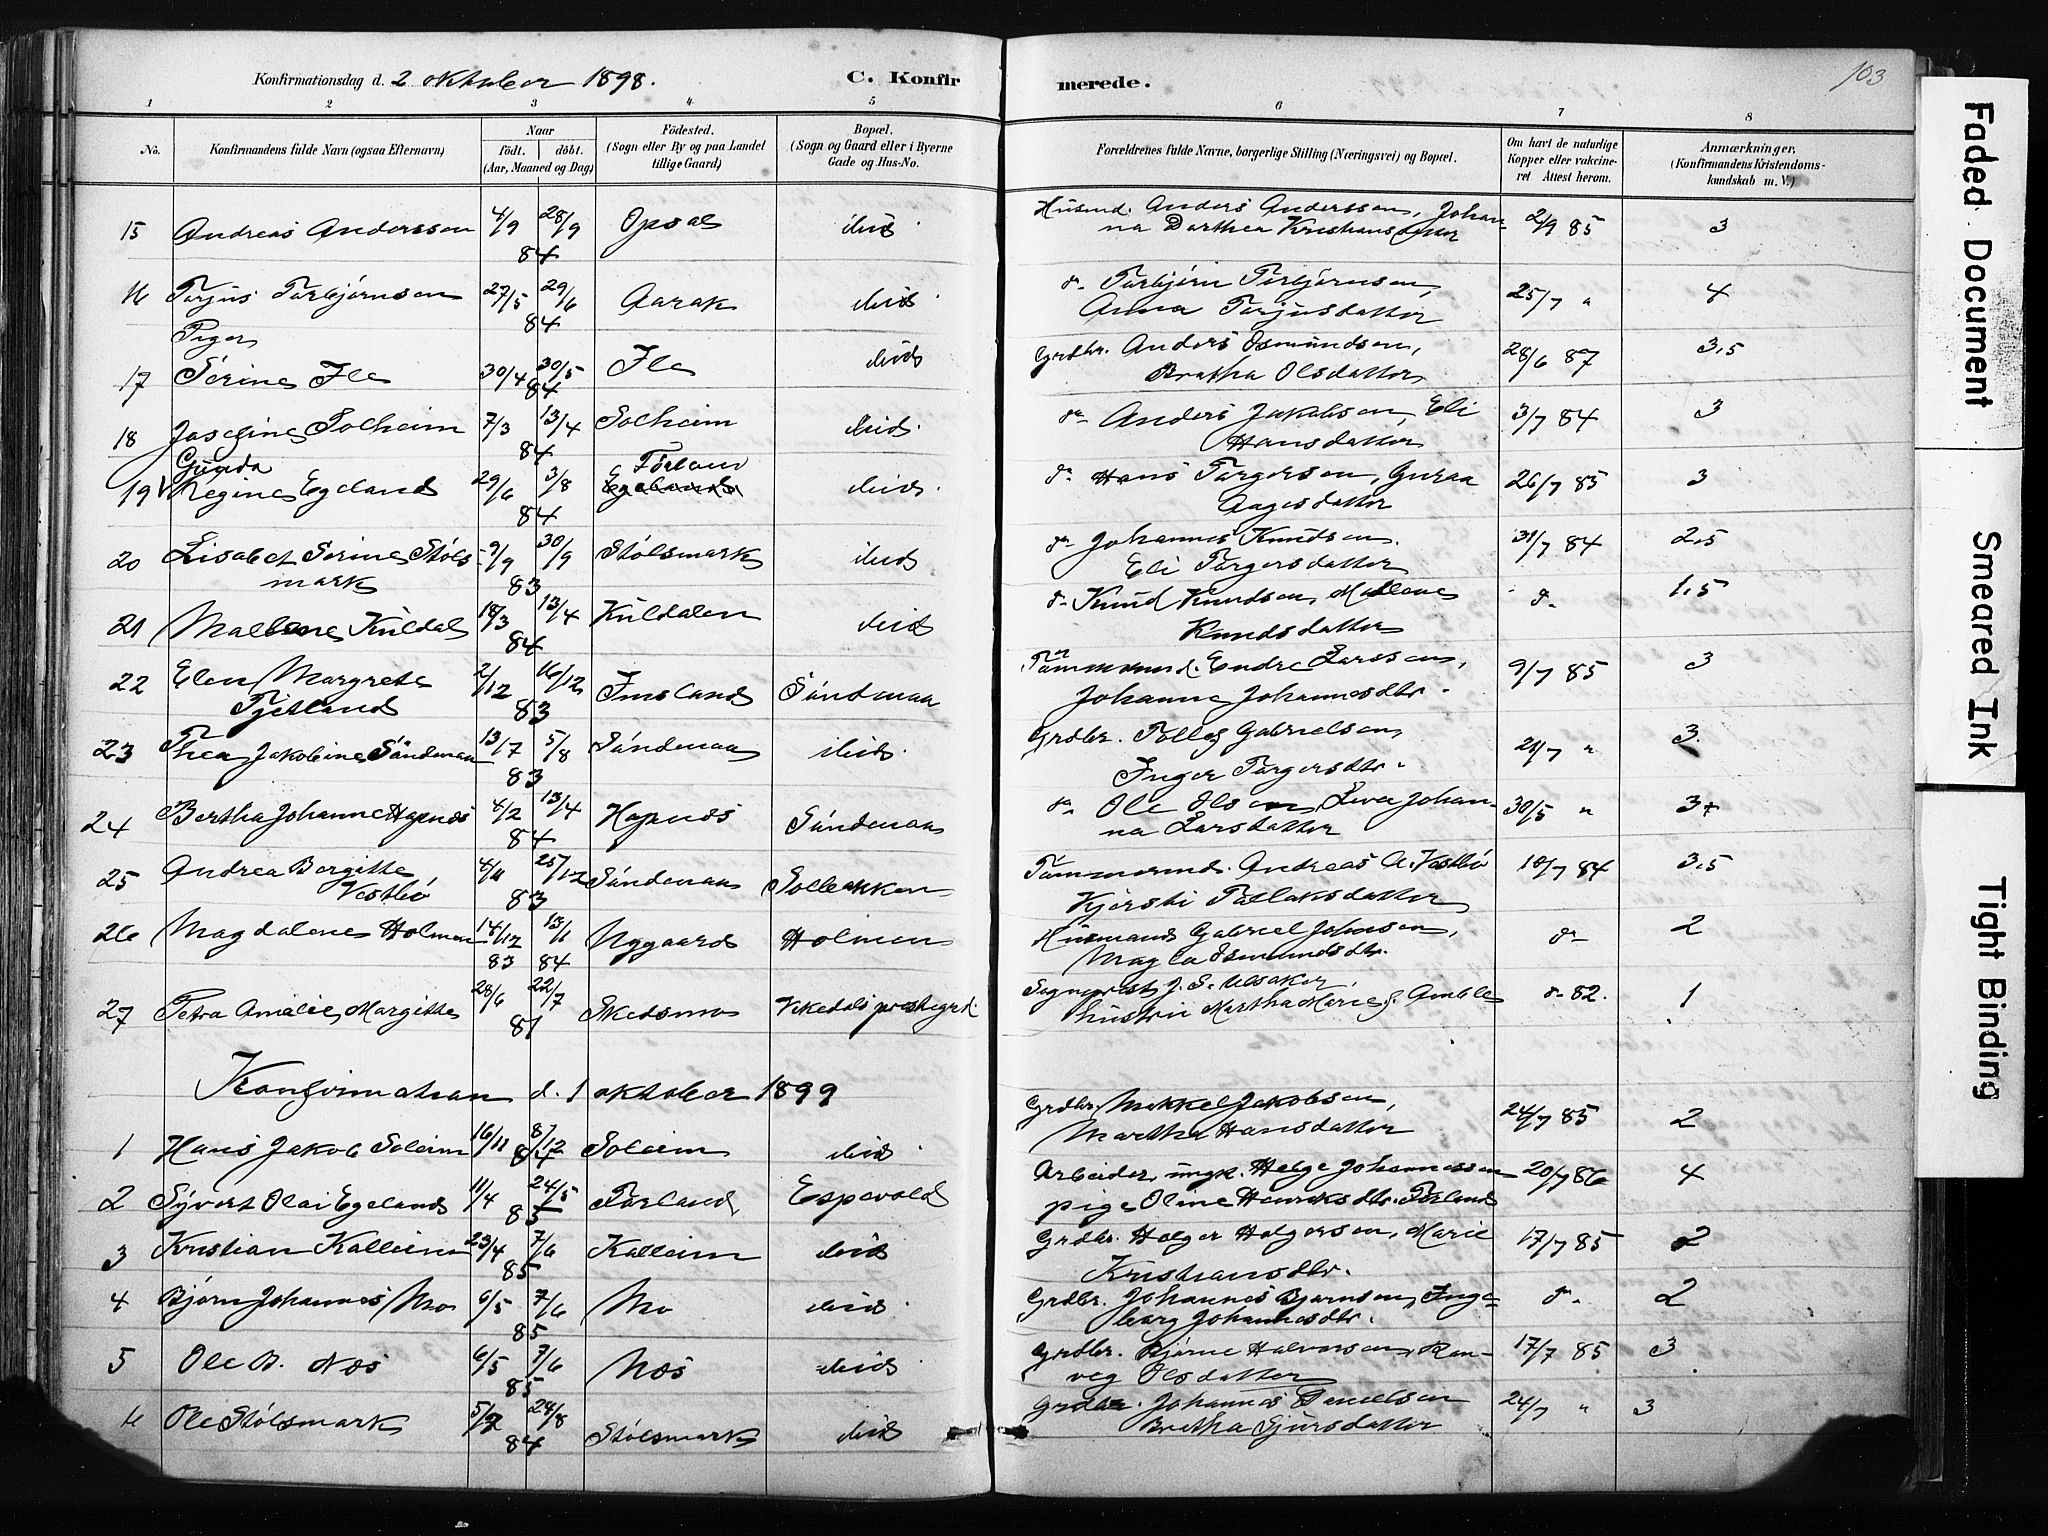 Konfirmationsdag d. 2 oktober 1898. C. Konfirmerede. 103
1 2 3 4 5 6 7 8
No. Konfirmandens fulde Navn (ogsaa Efternavn) Naar født. døbt. (Aar, Maaned og Dag) Fødested. (Sogn eller By og paa Landet tillige Gaard) Bopæl. (Sogn og Gaard eller i Byerne Gade og Hus-No. Forældrenes fulde Navne, borgerlige Stilling (Næringsvei) og Bopæl. Om havt de naturlige Kopper eller vakcineret Attest herom. Anmærkninger. (Konfirmandens Kristendomskundskab m. V.)
15 Andreas Anderssen 4/9 28/9 84 Opsal ibid. Husmd. Anders Anderssen, Johanna Dorthea Kristiansdatter 2/9 85 3
16 Torjus Torbjørnsen 27/5 29/6 84 Aarak ibid. do Torbjørn Torbjørnsen, Anna Torjusdatter 25/7 " 4
Piger
17 Serine Ile 30/4 30/5 84 Ile ibid Grdbr. Anders Osmundsen, Bretha Olsdatter 28/6 87 3,5
18 Josefine Solheim 7/3 13/4 84 Solheim ibid. do Anders Jakobsen, Eli Hansdatter 3/7 84 3
19 Gunda Regine Egeland 29/6 3/8 84 Førland Egeland ibid. do Hans Torgersen, Guraa Aagesdatter 26/7 85 3
20 Lisabet Serine Stølsmark 9/9 30/9 83 Stølsmark ibid do Johannes Knudsen. Eli Torgersdatter 31/7 84 2,5
21 Malene Kuldal 18/3 13/4 84 Kuldalen ibid do Knud Knudsen, Malene Knudsdatter do 1,5
22 Elen Margrete Tjetland 2/12 16/12 83 Imsland Søndenaa Tømmermd. Endre Larssen, Johanne Johannesdtr. 9/7 85 3
23 Thea Jakobine Søndenaa 13/7 5/8 83 Søndenaa ibid. Grdbr. Tollef Gabrielsen, Inger Torgersdtr. 21/7 " 3
24 Bertha Johanne Hapnes 4/2 13/4 84 Hapnes Søndenaa do Ole Olsen, Liva Johanna Larsdatter 30/5 " 3+
25 Andrea Bergitte Vestbø 4/11 25/12 83 Søndenaa Solbakken Tømmermd. Andreas A. Vestbø Kjersti Tollaksdatter 10/7 84 3,5
26 Magdalene Holmen 14/12 83 13/1 84 Nygaard Holmen Husmand Gabriel Johnsen, Magla Osmundsdtr. do 2
27 Petra Amalie Margitte 28/6 22/7 81 Skedsmo Vikedals prestegrd. Sogneprest J. S. Ulsaker, hustru Martha Marie f. Amble do 82. 1
Konfirmation d. 1 oktober 1899
1 Hans Jakob Soleim 16/11 8/12 84 Soleim ibid. Grdbr. Mikkel Jakobsen, Martha Hansdatter 24/7 85 2
2 Syvert Olai Egeland 11/4 24/5 85 Førland, Espevold Arbeider, ungk. Helge Johannessen pige Oline Henriksdtr. Førland 20/7 86 4
3 Kristian Kalleim 23/4 7/6 85 Kalleim ibid Grdbr. Holger Holgersen, Marie Kristiansdtr. 17/7 85 2
4 Bjørn Johannes Mo 6/5 7/6 85 Mo ibid. Grdbr. Johannes Bjørnsen, Ingeborg Johannesdtr. do 2
5 Ole B. Næs 6/5 7/6 85 Næs ibid. Grdbr. Bjørne Halvorsen, Ranveg Olsdatter 17/7 85 3
6 Ole Stølsmark 5/7 24/8 84 Stølsmark ibid Grdbr. Johannes Danielsen Bretha Sjursdatter 24/7 " 3
Faded Document
Smeared Ink
Tight Binding